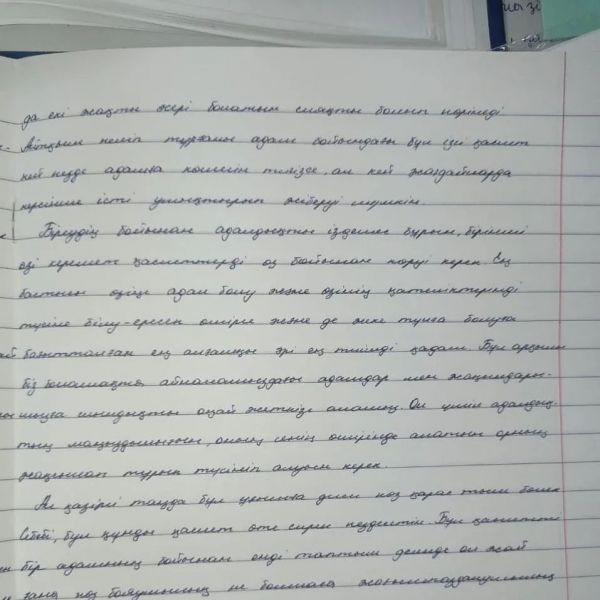 да екі жақты жері болатын сияқты болып көрінеді
Айтқым келіп тұрғаны адам бойындағы бұл ізгі қасиет
кей кезде адамға көмегін тигізсе, ал кей жағдайларда
керісінше істі ушықтырып жіберуі мүмкін.
Біреудің бойынан адалдықты іздемес бұрын, бірінші
осы керемет қасиеттерді өз бойынан көруі керек. Ең
бастысы өзіңе адал болу және өзінің қателіктеріңді
түсіне білу-ересен өмірге және де жеке тұлға болуға
бағытталған ең алғашқы әрі ең тиімді қадам. Бұл арқылы
біз болашақта айналамыздағы адамдар мен жақындары-
мызға шындықты оңай жеткізе аламыз. Ол үшін адалдық-
тың маңыздылығын, оның сенің өміріңде алатын орнын
жақсылап тұрып түсініп алуың керек.
Ал қазіргі таңда бұл ұғымға деген көз қарас тым бөлек
Себебі, бұл құнды қасиет өте сирек кездеседі. Бұл қасиетті
бір адамның бойынан енді таптым дегенде ол жай
ғана көз бояушылық не болмаса